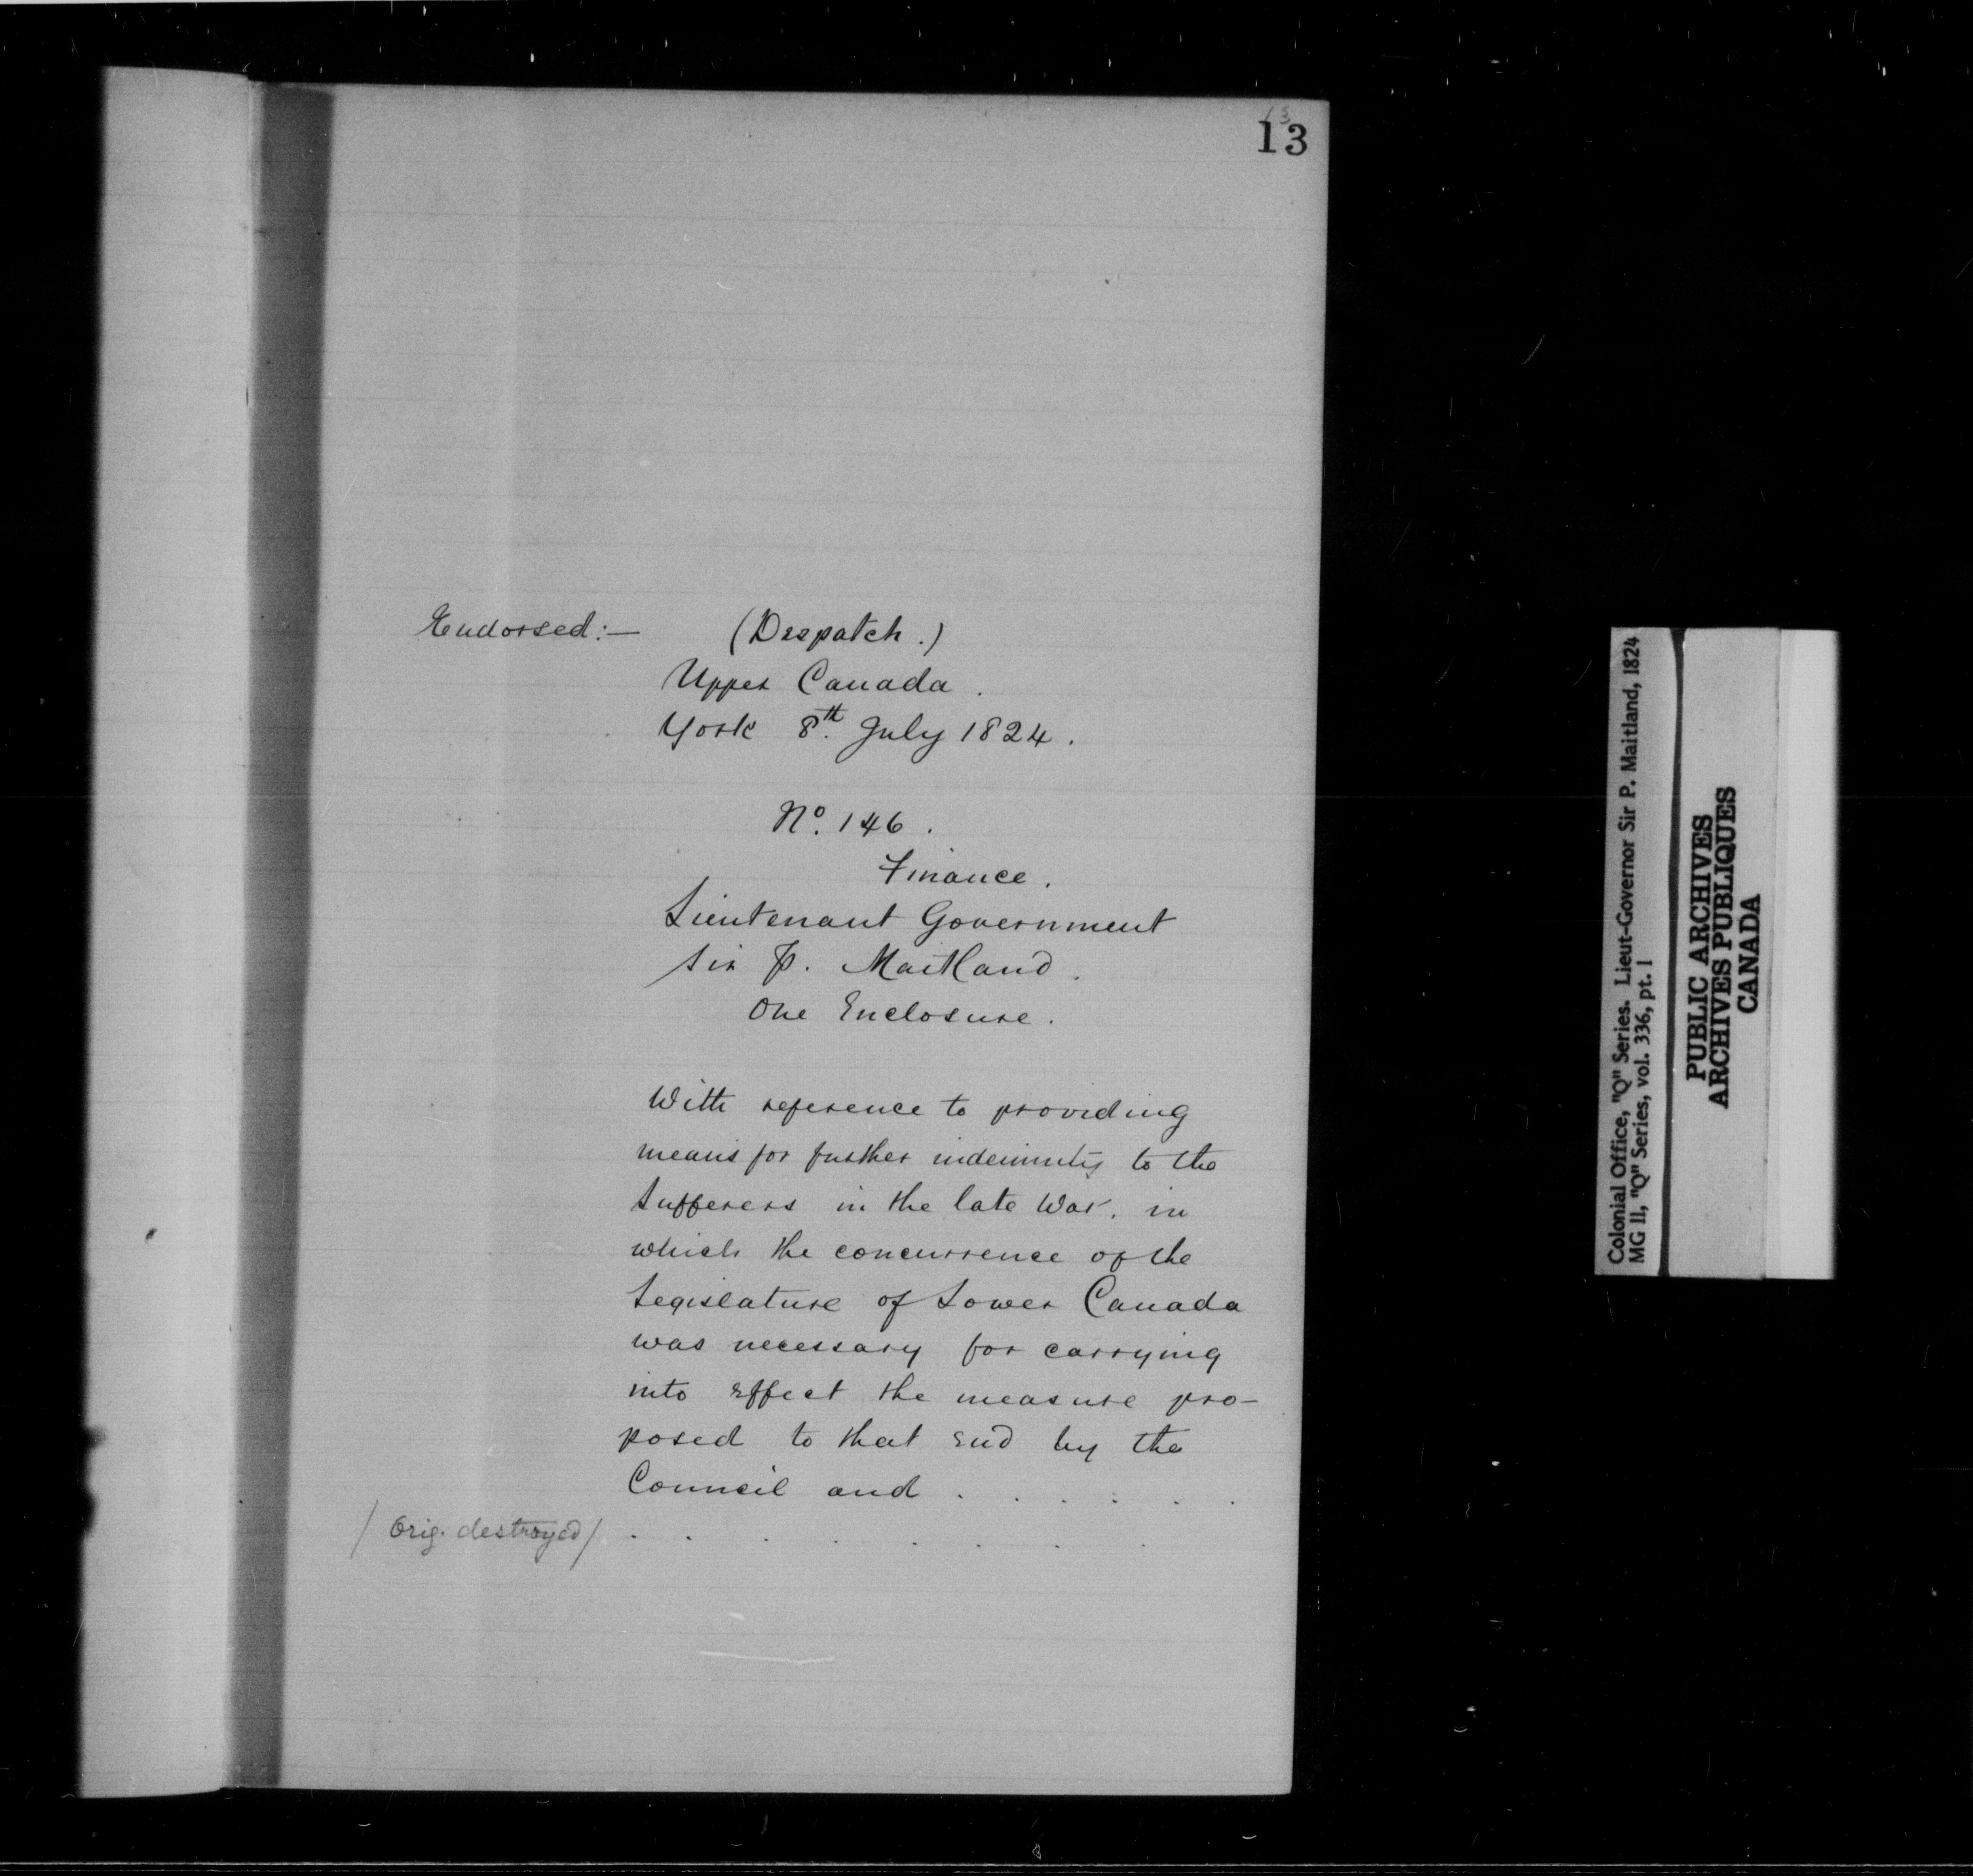 13
13
Endorsed:— (Despatch.)
Upper Canada.
York 8th. July 1824.
No. 146.
Finance.
Lieutenant Government
Sir P. Maitland.
One Enclosure.
With reference to providing
means for further indemnity to the
Sufferers in the late War, in
which the concurrence of the
Legislature of Lower Canada
was necessary for carrying
into effect the measure pro-
posed to that end by the
Council and . . . . . .
/ Orig. destroyed / . . . . . . . .
Colonial Office, "Q" Series. Lieut-Governor Sir P. Maitland, 1824
MG 11, "Q" Series, vol. 336, pt. 1
PUBLIC ARCHIVES
ARCHIVES PUBLIQUES
CANADA